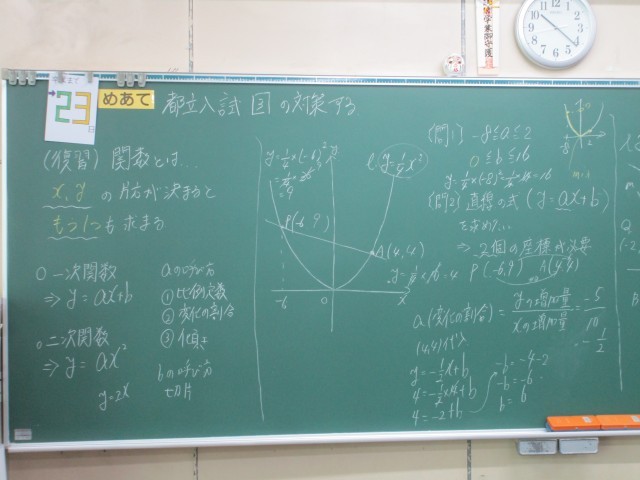 23
めあて
都立入試 図の対策する
(復習) 関数とは…
x, yの片方が決まると
もう1つも求まる
○一次関数
⇒ y=ax+b
○二次関数
⇒ y=ax²
y=2x
aの呼び方
① 比例定数
② 変化の割合
③ 傾き
bの呼び方
切片
y=1/4×(-6)²
=9
y
l
y=1/4x²
P(-6, 9)
A(4, 4)
y=1/4×16=4
-6
O
x
(問1) -8≦a≦2
0≦b≦16
y=1/4×(-8)²
=16
-8
2
(問2) 直線の式 (y=ax+b)
を求め…
⇒ 2個の座標が必要
P(-6,9) A(4,4)
a(変化の割合)=yの増加量/xの増加量=-5/10
=-1/2
(4,4)代入
y=-1/2x+b
4=-1/2×4+b
4=-2+b
-b=-4-2
-b=-6
b=6